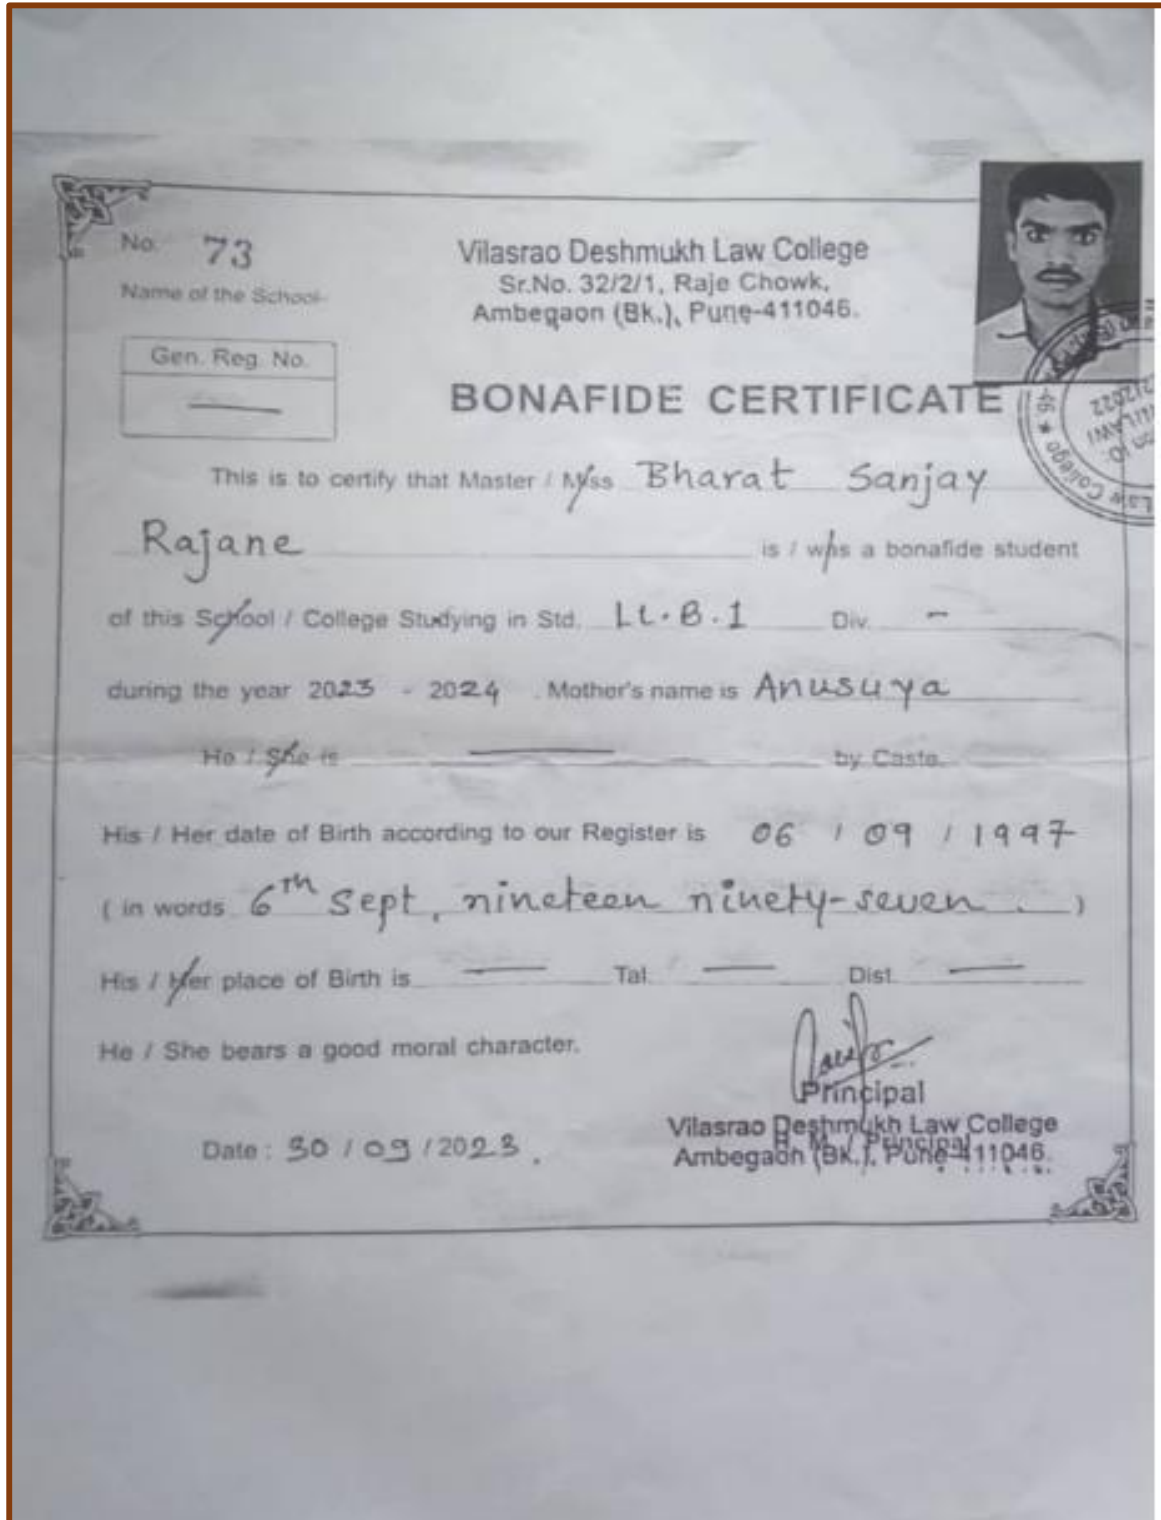 No. 73
Vilasrao Deshmukh Law College
Name of the School-
Sr.No. 32/2/1, Raje Chowk,
Ambegaon (Bk.), Pune-411046.
Gen. Reg. No.
—
BONAFIDE CERTIFICATE
This is to certify that Master / Miss Bharat Sanjay
Rajane is / was a bonafide student
of this School / College Studying in Std. LL.B.I Div. -
during the year 2023 - 2024 . Mother's name is Anusuya
He / She is — by Caste.
His / Her date of Birth according to our Register is 06 / 09 / 1997
( in words 6th Sept, nineteen ninety-seven )
His / Her place of Birth is — Tal. — Dist. —
He / She bears a good moral character.
Principal
Vilasrao Deshmukh Law College
H. M. / Principal
Ambegaon (BK.), Pune-411046.
Date : 30 / 09 / 2023.
Law College